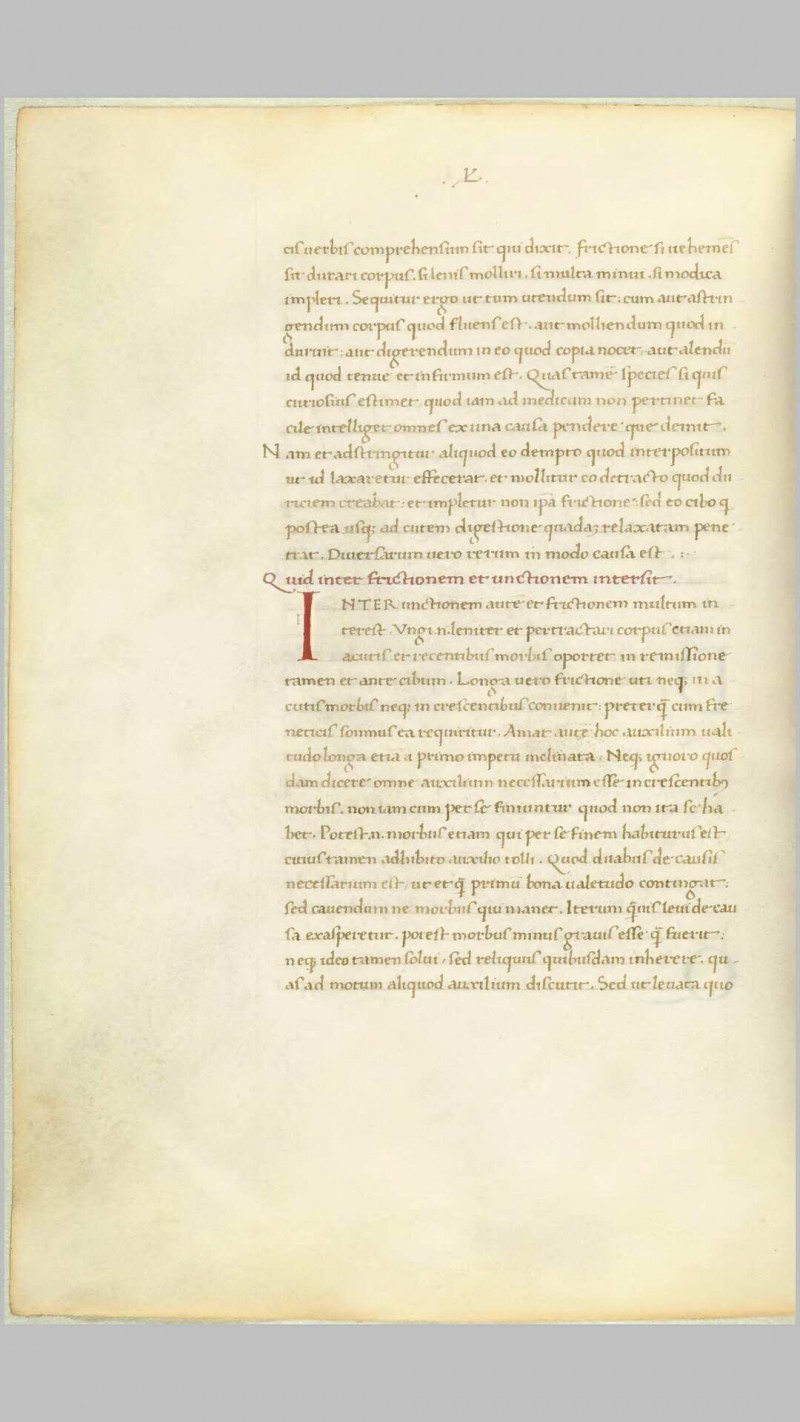 .L.
cis uerbis comprehensum sit qui dixit. frictione si uehemēs
sit durari corpus. si lenis molliri. si multa minui. si modica
impleri. Sequitur ergo ut tum utendum sit: cum aut astrin
gendum corpus quod fluens est. aut molliendum quod in
duruit: aut digerendum in eo quod copia nocet. aut alendū
id quod tenue et infirmum est. Quas tamē species si quis
curiosius estimet quod iam ad medicum non pertinet fa
cile intelliget omnes ex una causa pendere que demit.
Nam et adstringitur aliquod eo dempto quod interpositum
ut id laxaretur effecerat. et mollitur eo detracto quod du
riciem creabat: et impletur non ipā frictione sed eo cibo q
postea usq; ad cutem digestione quadā relaxatam pene
trat. Diuersarum uero rerum in modo causa est.
Quid inter frictionem et unctionem intersit.
INTER unctionem autē et frictionem multum in
terest. Vngi .n. leniter et pertractari corpus etiam in
acutis et recentibus morbis oportet in remissione
tamen et ante cibum. Longa uero frictione uti neq; in a
cutis morbis neq; in crescentibus conuenit: preterq̄ cum fre
neticis somnus ea requiritur. Amat autē hoc auxilium uali
tudo longa etiā a primo impetu inclinata. Neq; ignoro quos
dam dicere omne auxilium necessarium esse in crescentib;
morbis. non iam cum per se finiuntur quod non ita se ha
bet. Potest .n. morbus etiam qui per se finem habiturus est
citius tamen adhibito auxilio tolli. Quod duabus de causis
necessarium est, ut et q̄ primū bona ualetudo contingat:
sed cauendum ne morbus qui manet. Iterum q̄uis leui de cau
sa exasperetur. potest morbus minus grauis esse q̄ fuerit:
neq; ideo tamen solui, sed reliquus quibusdam inherere. qu
as ad motum aliquod auxilium discutit. Sed ut leuata quo